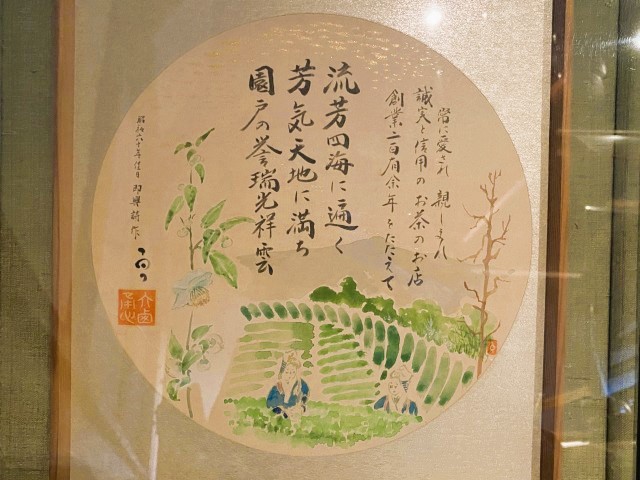 常に愛され 親しまれ
誠実と信用のお茶のお店
創業二百有余年をたたえて
流芳四海に遍く
芳気天地に満ち
園戸の誉瑞光祥雲
昭和六十年佳日